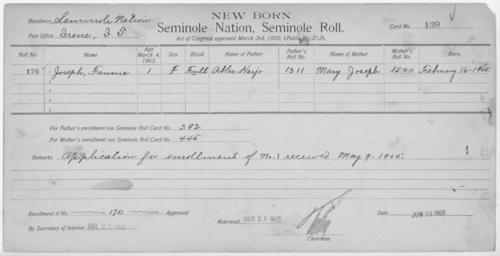 NEW BORN
Residence, Seminole Nation
Seminole Nation, Seminole Roll.
Card No. 139
Post Office, Irene, I. T.
Act of Congress approved March 3rd, 1905, (Public No. 212).
Roll No. Name Age March 4, 1905 Sex. Blood Name of Father Father's Roll No. Name of Mother Mother's Roll No. Born.
170 Joseph, Fannie 1 F Full Abler Harjo 1311 Mary Joseph 1500 February 16-1905.
For Father's enrollment see Seminole Roll Card No. 392
For Mother's enrollment see Seminole Roll Card No. 445
Remarks Application for enrollment of No. 1 received May 9-1905.
Enrollment of No. 170 Approved
Approved JUN 28 1905
Date JUN 28 1905
By Secretary of Interior
Chairman.